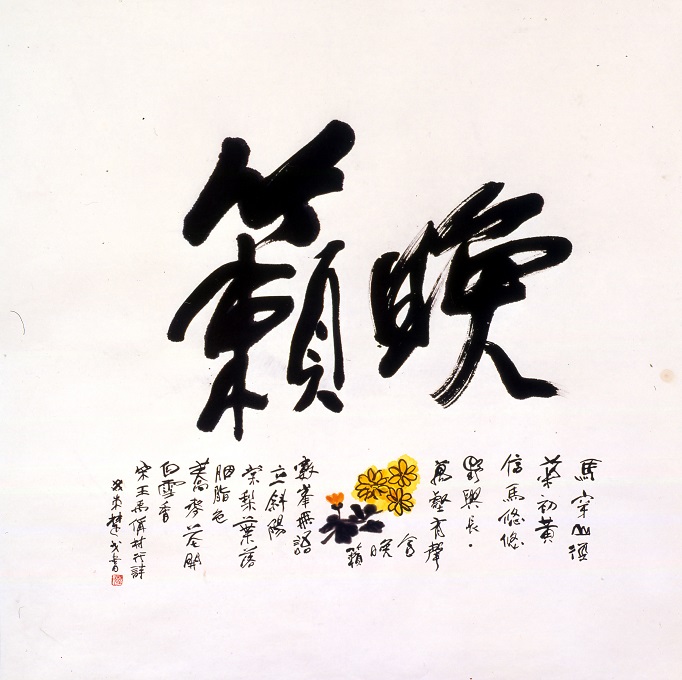 晚籟
馬穿山徑
菊初黃
信馬悠悠
野興長。
萬壑有聲
含
晚
籟
數峯無語
立斜陽
棠梨葉落
胭脂色
蕎麥花開
白雪香
宋王禹偁村行詩
楚戈書